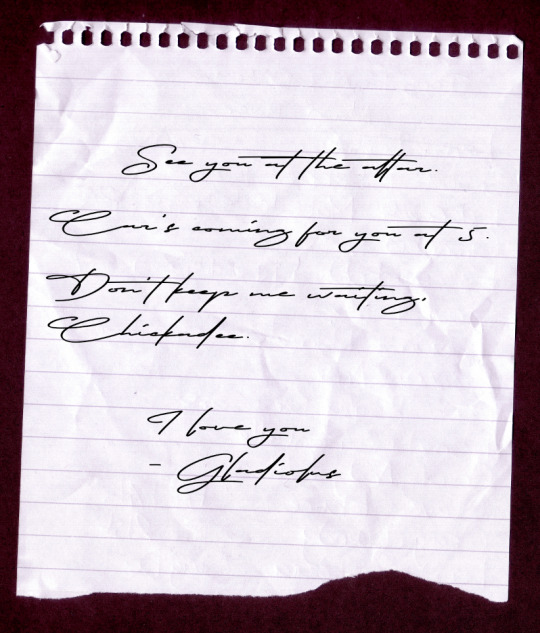 See you at the altar.
Car's coming for you at 5.
Don't keep me waiting,
Chickadee.
I love you
- Gladiolus